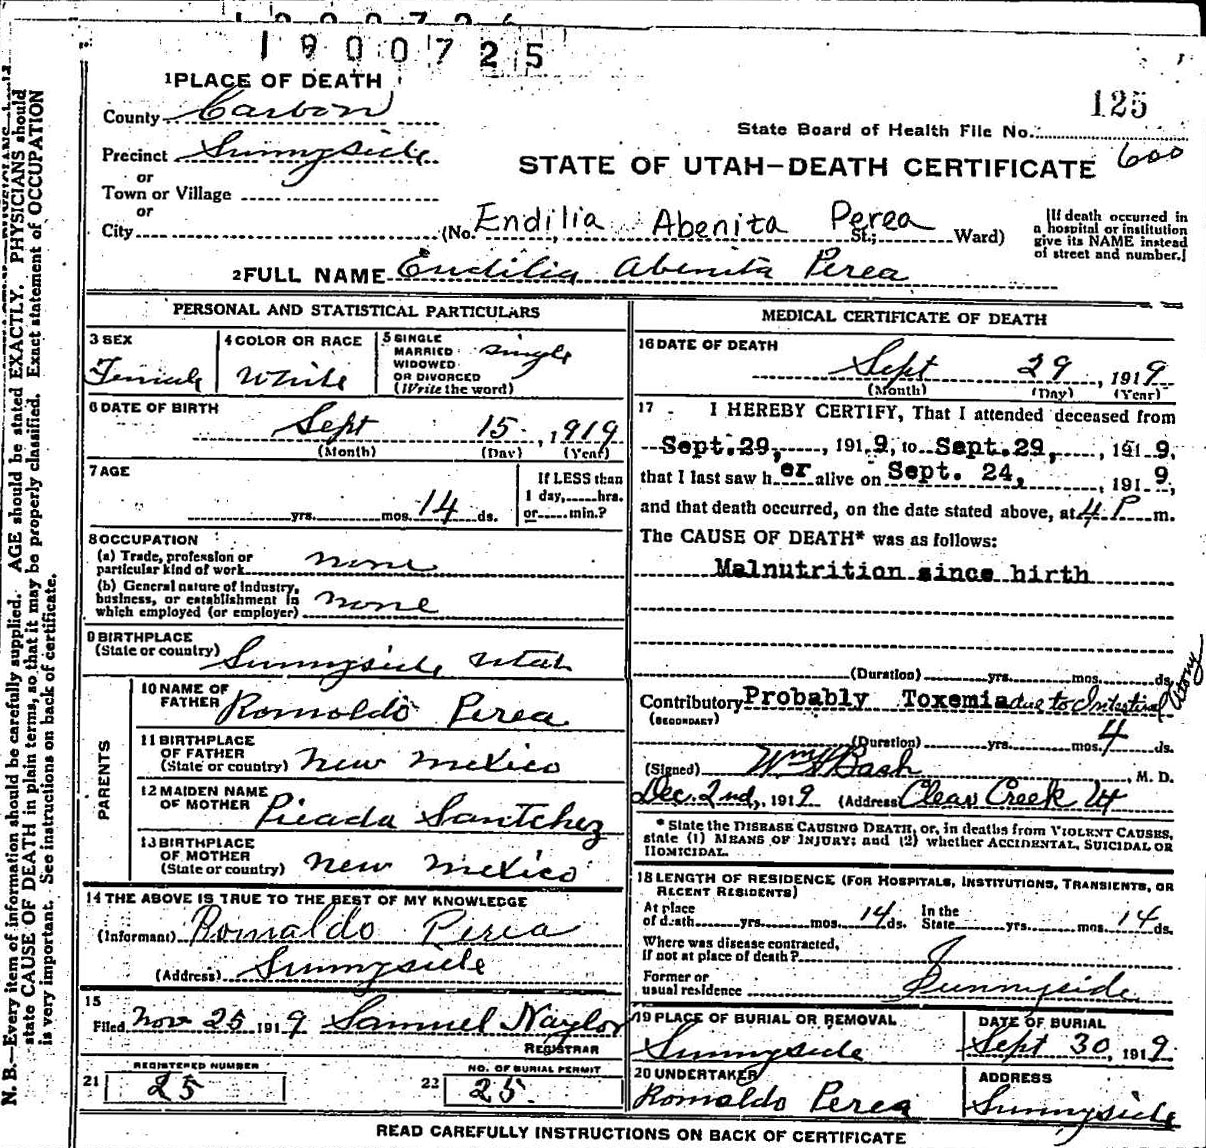 1900725
1PLACE OF DEATH
County Carbon
125
State Board of Health File No.
Precinct Sunnyside
600
STATE OF UTAH—DEATH CERTIFICATE
or
Town or Village
or
City (No. Endilia Abenita Perea St.; Ward)
[If death occurred in
a hospital or institution
give its NAME instead
of street and number.]
2FULL NAME Endilia Abenita Perea
PERSONAL AND STATISTICAL PARTICULARS
3 SEX
Female
4 COLOR OR RACE
White
5 SINGLE
MARRIED
WIDOWED
OR DIVORCED
(Write the word)
single
6 DATE OF BIRTH
Sept 15, 1919
(Month) (Day) (Year)
7 AGE
yrs. mos. 14 ds.
If LESS than
1 day, hrs.
or min.?
8 OCCUPATION
(a) Trade, profession or
particular kind of work none
(b) General nature of industry,
business, or establishment in
which employed (or employer) none
9 BIRTHPLACE
(State or country) Sunnyside Utah
PARENTS
10 NAME OF
FATHER Romoldo Perea
11 BIRTHPLACE
OF FATHER
(State or country) New Mexico
12 MAIDEN NAME
OF MOTHER Picada Santchez
13 BIRTHPLACE
OF MOTHER
(State or country) New Mexico
14 THE ABOVE IS TRUE TO THE BEST OF MY KNOWLEDGE
(Informant) Romaldo Perea
(Address) Sunnyside
15
Filed Nov 25 1919 Samuel Naylor
REGISTRAR
REGISTERED NUMBER
21 25
NO. OF BURIAL PERMIT
22 25
MEDICAL CERTIFICATE OF DEATH
16 DATE OF DEATH
Sept 29, 1919
(Month) (Day) (Year)
17 I HEREBY CERTIFY, That I attended deceased from
Sept. 29, 1919, to Sept. 29, 1919,
that I last saw her alive on Sept. 24, 1919,
and that death occurred, on the date stated above, at 4 P m.
The CAUSE OF DEATH* was as follows:
Malnutrition since birth
(Duration) yrs. mos. ds.
Contributory Probably Toxemia due to Intestinal Atony
(SECONDARY)
(Duration) yrs. mos. 4 ds.
(Signed) Wm H Bash, M. D.
Dec. 2nd, 1919 (Address) Clear Creek Ut
* State the DISEASE CAUSING DEATH, or, in deaths from VIOLENT CAUSES,
state (1) MEANS OF INJURY; and (2) whether ACCIDENTAL, SUICIDAL OR
HOMICIDAL.
18 LENGTH OF RESIDENCE (FOR HOSPITALS, INSTITUTIONS, TRANSIENTS, OR
RECENT RESIDENTS)
At place
of death yrs. mos. 14 ds.
In the
State yrs. mos. 14 ds.
Where was disease contracted,
if not at place of death?
Former or
usual residence Sunnyside
19 PLACE OF BURIAL OR REMOVAL
Sunnyside
DATE OF BURIAL
Sept 30, 1919
20 UNDERTAKER
Romaldo Perea
ADDRESS
Sunnyside
READ CAREFULLY INSTRUCTIONS ON BACK OF CERTIFICATE
N. B.—Every item of information should be carefully supplied. AGE should be stated EXACTLY. PHYSICIANS should
state CAUSE OF DEATH in plain terms, so that it may be properly classified. Exact statement of OCCUPATION
is very important. See instructions on back of certificate.